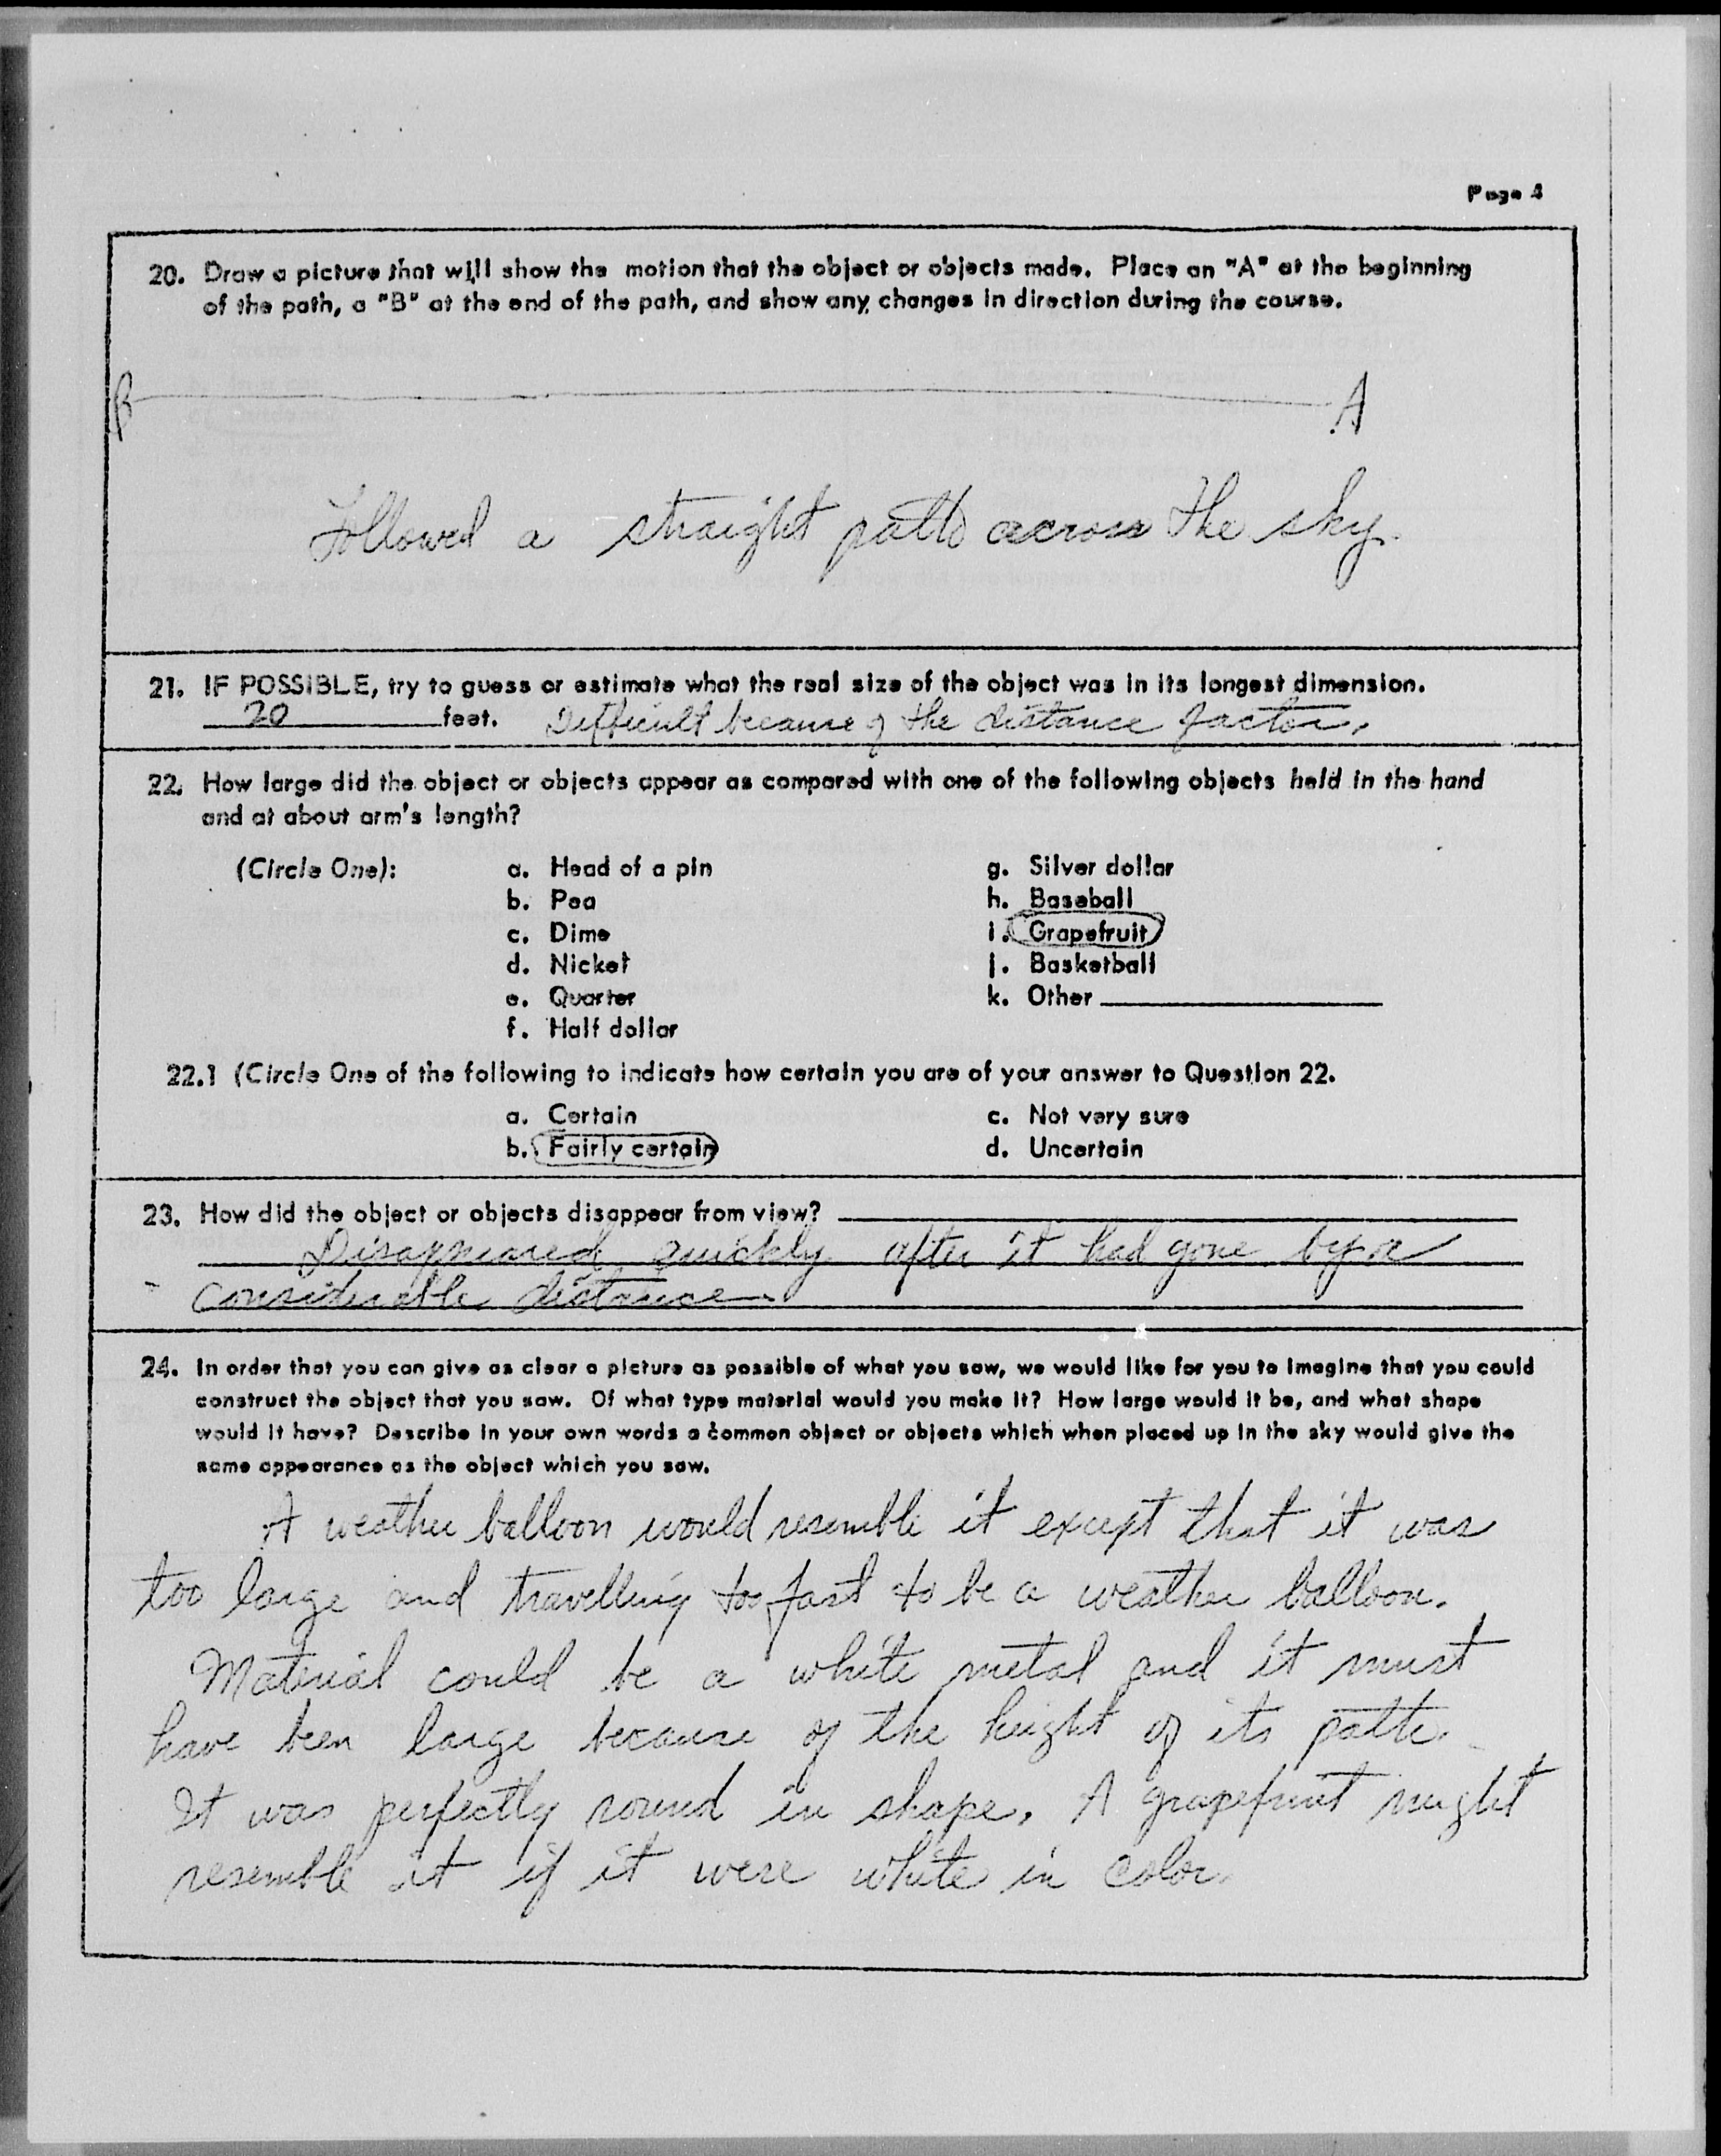 Page 4
20. Draw a picture that will show the motion that the object or objects made. Place an "A" at the beginning
of the path, a "B" at the end of the path, and show any changes in direction during the course.
B A
Followed a straight path across the sky.
21. IF POSSIBLE, try to guess or estimate what the real size of the object was in its longest dimension.
20 feet. Difficult because of the distance factor.
22. How large did the object or objects appear as compared with one of the following objects held in the hand
and at about arm's length?
(Circle One): a. Head of a pin g. Silver dollar
b. Pea h. Baseball
c. Dime i. Grapefruit
d. Nickel j. Basketball
e. Quarter k. Other
f. Half dollar
22.1 (Circle One of the following to indicate how certain you are of your answer to Question 22.
a. Certain c. Not very sure
b. Fairly certain d. Uncertain
23. How did the object or objects disappear from view?
Disappeared quickly after it had gone by a
considerable distance.
24. In order that you can give as clear a picture as possible of what you saw, we would like for you to imagine that you could
construct the object that you saw. Of what type material would you make it? How large would it be, and what shape
would it have? Describe in your own words a common object or objects which when placed up in the sky would give the
same appearance as the object which you saw.
A weather balloon would resemble it except that it was
too large and travelling too fast to be a weather balloon.
Material could be a white metal and it must
have been large because of the height of its path.
It was perfectly round in shape. A grapefruit might
resemble it if it were white in color.